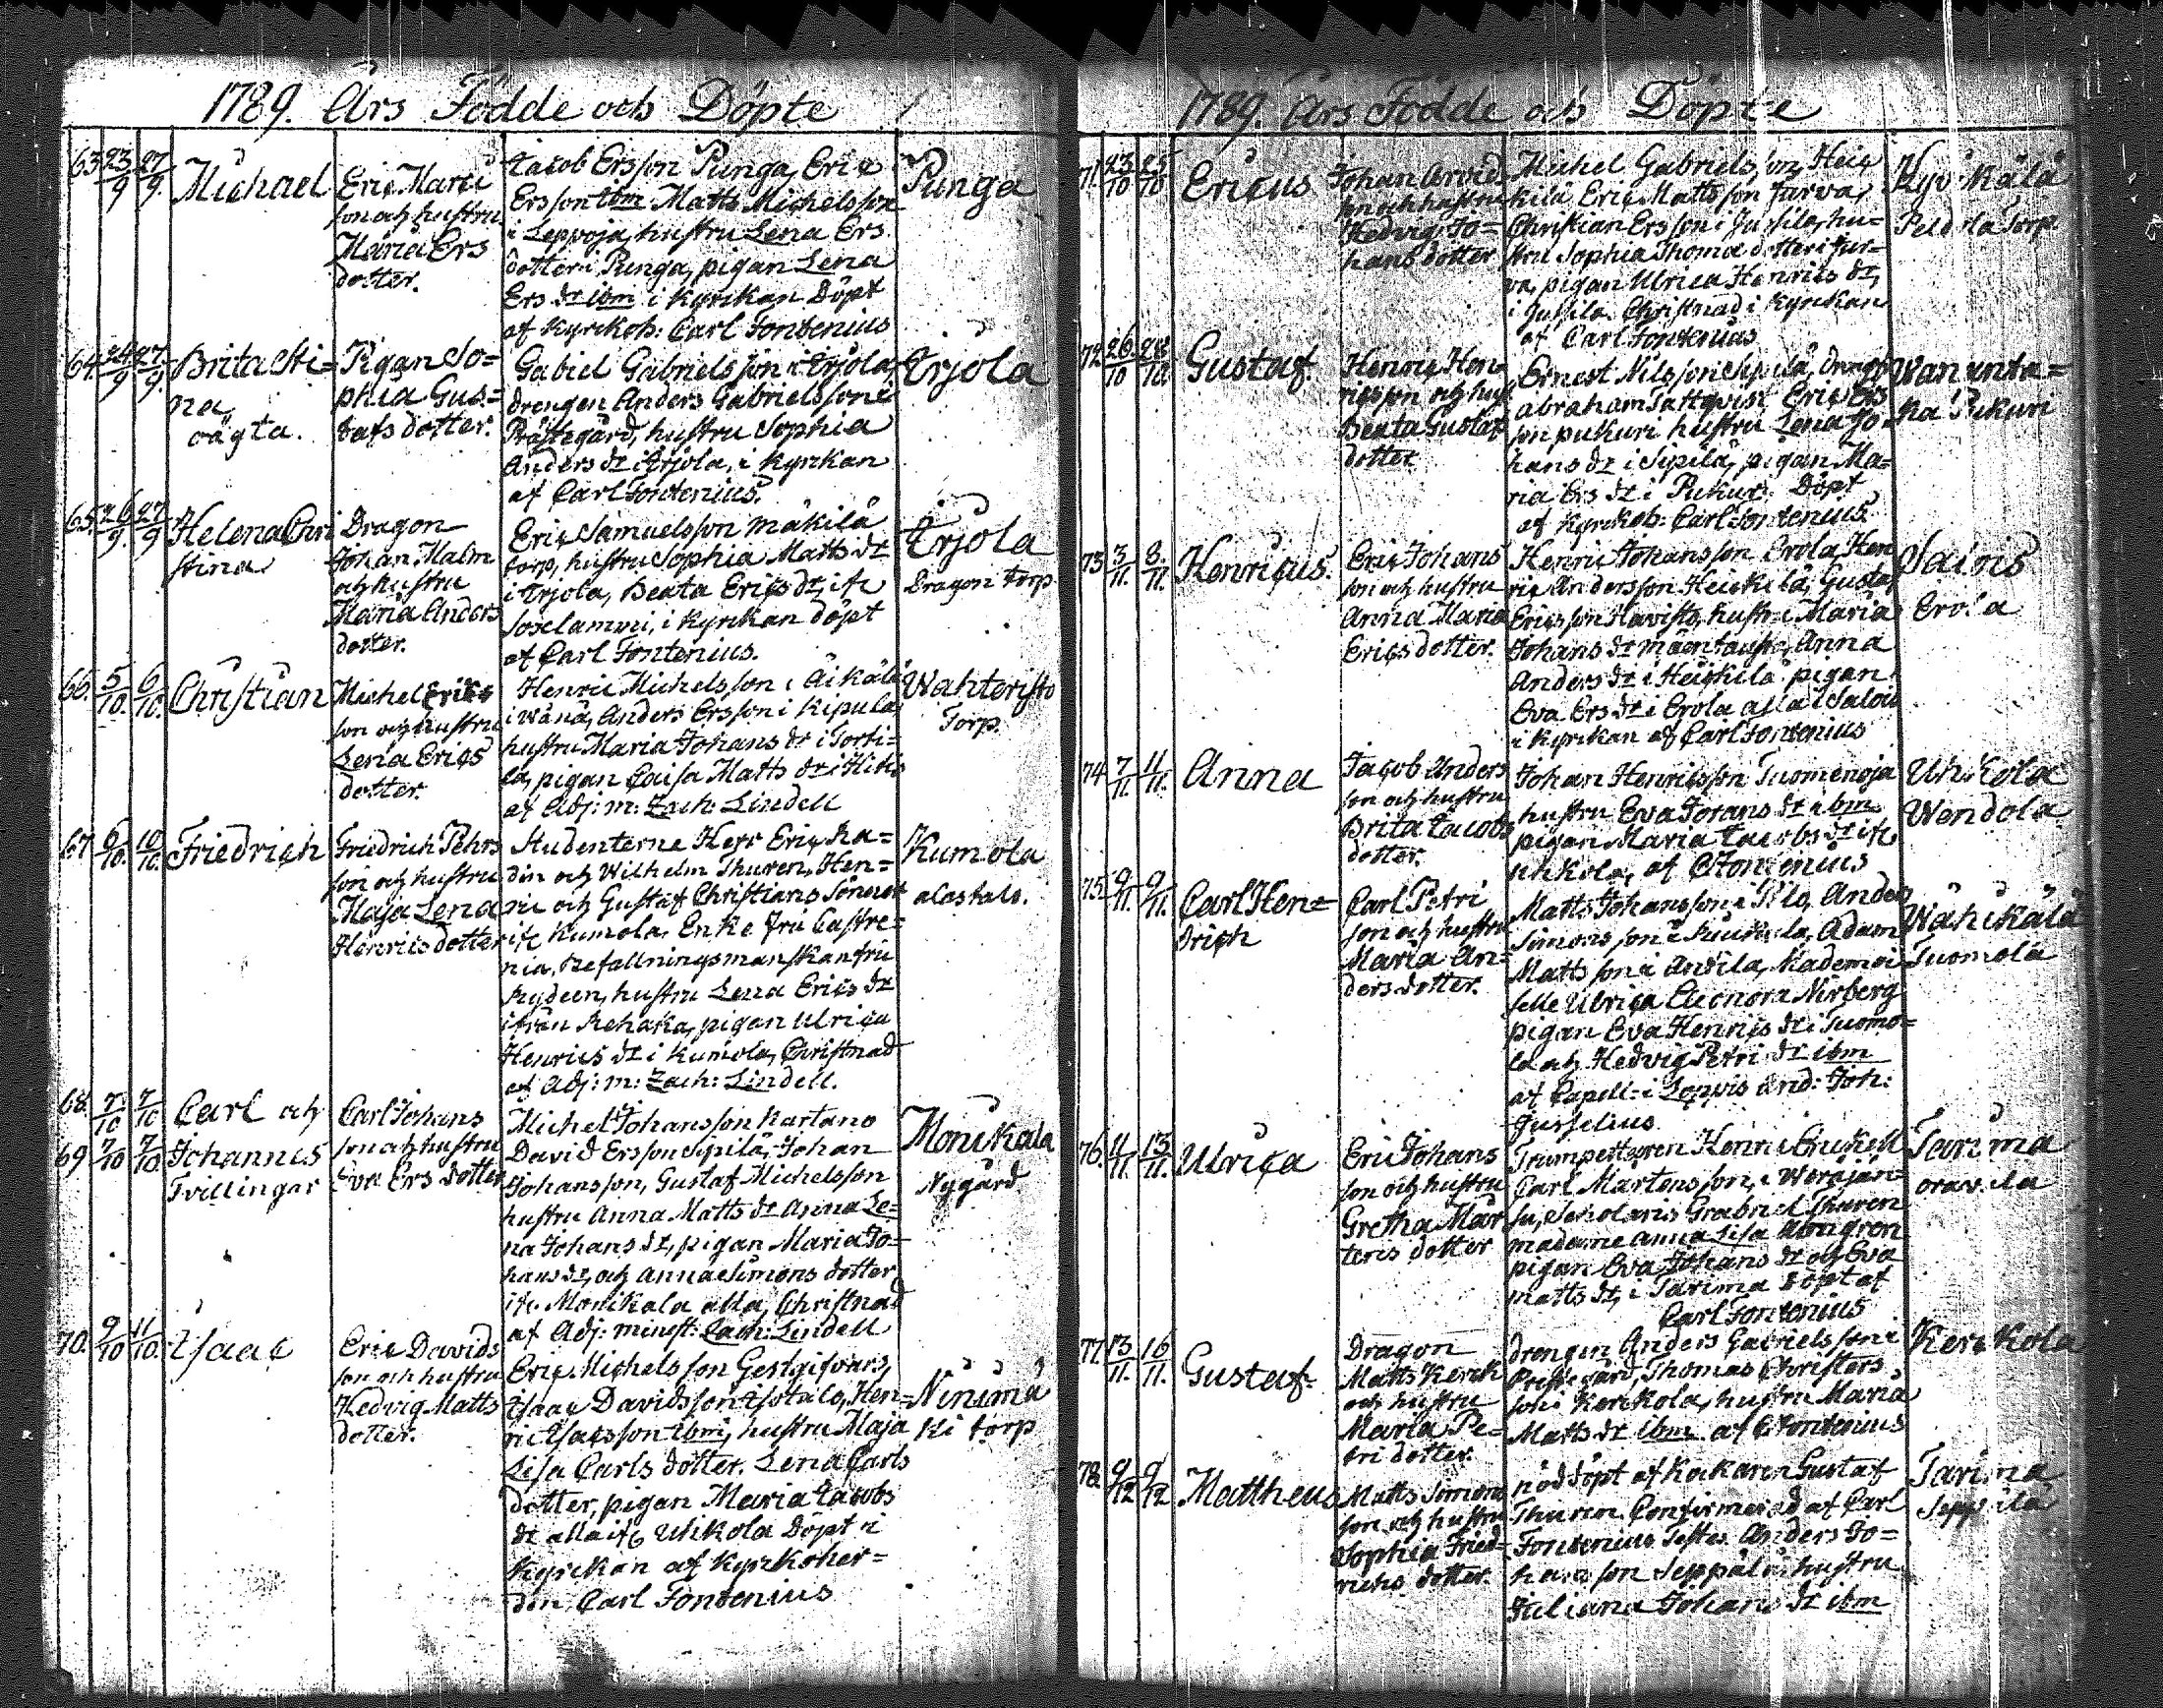 1789. Års Födde och Döpte
63 23/9 27/9. Michael
Eric Matti
son och hustru
Maria Ers
dotter.
Jacob Ersson Punga, Eric
Ersson ibm Matts Michelsson
i Leppoja, hustru Lena Ers
dotter i Punga, pigan Lena
Ers dr ibm i Kyrckan Döpt
af Kyrckoh: Carl Fontenius
Punga
64. 24/9 27/9. Brita Sti=
na,
oägta.
Pigan So=
phia Gus=
tafs dotter.
Gabiel Gabrielsson i Erjola,
drengen Anders Gabrielsson i
Prästegård, hustru Sophia
Anders dr i Erjola, i Kyrckan
af Carl Fontenius.
Erjola
65. 26/9. 27/9 Helena Chri
stina
Dragon
Johan Malm
och hustru
Maria Anders
dotter.
Eric Samuelsson Mäkilä
torp, hustru Sophia Matts dr
i Erjola, Beata Erics dr, ifr
i Kyrckan döpt
af Carl Fontenius.
Erjola
Dragon torp
66. 5/10. 6/10. Christian
Michel Erics
son och hustru
Lena Erics
dotter.
Henric Michelsson i Äikälä
i Wånå, Anders Ersson i Kipula,
hustru Maria Johans dr i Torti=
la, pigan Caisa Matts dr i
af Adj: m: Zach: Lindell
Wahteristo
Torp.
67 6/10. 10/10. Friedrich
Friedrich Pehrs
son och hustru
Maja Lena
Henrics dotter
Studenterne Herr Eric Ha=
din och Wilhelm Thuren, Hen=
ric och Gustaf Christians Söner
ifr Kumola, Enke Fru Castre=
nia, Befallningsmanskan fru
Rydeen, hustru Lena Erics dr
ifrån Rehaka, pigan Ulrica
Henrics dr i Kumola, Christnad
af Adj: m: Zach: Lindell.
Kumola
alastalo.
68. 7/10 7/10 Carl och
69 7/10 7/10 Johannes
Tvillingar
Carl Johans
son och hustru
Eva Ers dotter
Michel Johansson Kartano
David Ersson Sipilä, Johan
Johansson, Gustaf Michelsson
hustru Anna Matts dr Anna Le=
na Johans dr, pigan Maria Jo=
hans dr, och Anna Simons dotter
ifr. Monikala alla, Christnad
af Adj: minist: Zach: Lindell
Monikala
Nygård
70. 9/10 11/10. Isaac
Eric Davids
son och hustru
Hedvig Matts
dotter.
Eric Michelsson Gestgifvars,
Isaac Davidsson Isotalo, Hen=
ric Isacsson ibm, hustru Maja
Lisa Carls dotter. Lena Carls
dotter, pigan Maria Jacobs
dr alla ifr Uhkola Döpt i
Kyrckan af Kyrckoher=
den, Carl Fontenius
Ninimä
ki torp
1789. Års Födde och Döpte
71. 23/10 25/10 Ericus
Johan Arvids
son och hustru
Hedvig Jo=
hans dotter
Michel Gabrielsson, Heic
kilä Eric Mattsson Jarva,
Christian Ersson i Jussila, hu=
stru Sophia Thomæ dotter i Jar=
va, pigan Ulrica Henrics dr,
i Jussila. Christnad i Kyrckan
af Carl Fontenius
Hyvikälä
Torp.
72. 26./10 28/10 Gustaf.
Henric Hen
ricsson och hust
Beata Gustaf
dotter
Ernest Nilsson Sipilä, dreng
Abraham Tattqvist, Eric Ers
son Pukuri hustru Lena Jo
hans dr i Sipilä, pigan Ma=
ria Ers dr i Pukuri. Döpt
af Kyrckoh: Carl Fontenius.
Wananta=
ka Pukuri
73 3/11. 8./11. Henricus.
Eric Johans
son och hustru
Anna Maria
Erics dotter.
Henric Johansson Erola, Hen
ric Andersson Heickilä, Gustaf
Ericsson Havisto, hustru Maria
Johans dr Mäentausta, Anna
Anders dr i Heickilä, pigan
Eva Ers dr i Erola alla i Salois
i Kyrckan af Carl Fontenius
Salois
Erola
74 7/11. 11/11. Anna
Jacob Anders
son och hustru
Brita Jacobs
dotter.
Johan Henricsson Tuomenoja
hustru Eva Johans dr ibm
pigan Maria Jacobs dr ifr
Uhkola, af C Fontenius
Uhkola
Wendola
75. 9/11. 9/11. Carl Hen=
drich
Carl Petri
son och hustru
Maria An=
ders dotter.
Matts Johansson i Pilo, Anders
Simonsson i Adam
Mattsson i Anttila, Mademoi
selle Ulrica Eleonora Nirberg
pigan Eva Henrics dr i Tuomo=
la och Hedvig Petri dr ibm
af Capell: i Loppis And: Joh:
Gusselius.
Wähikälä
Tuomola
76. 11/11. 13/11. Ulrica
Eric Johans
son och hustru
Gretha Mår
tens dotter
Trumpetaren Henric Enckell
Carl Mårtensson, i Weräjän=
su, Scholaris Gabriel Thuren
madame Anna Lisa Almgren
pigan Eva Johans dr och Eva
Matts dr, i Tarima döpt af
Carl Fontenius
Tarima
oravala
77. 13/11. 16/11. Gustaf
Dragon
Matts Kerck
och hustru
Maria Pe=
tri dotter.
drengen Anders Gabrielsson i
Prestegård, Thomas Christers
son i Kerckola, hustru Maria
Matts dr ibm. af C Fontenius
Kerckola
78. 9/12 9/12 Mattheus
Matts Simons
son och hustru
Sophia Fried=
richs dotter.
nöddöpt af Kockaren Gustaf
Thuren. Confirmerad af Carl
Fontenius Testes Anders Jo=
hansson Seppälä hustru
Juliana Johans dr ibm
Tarima
Seppälä